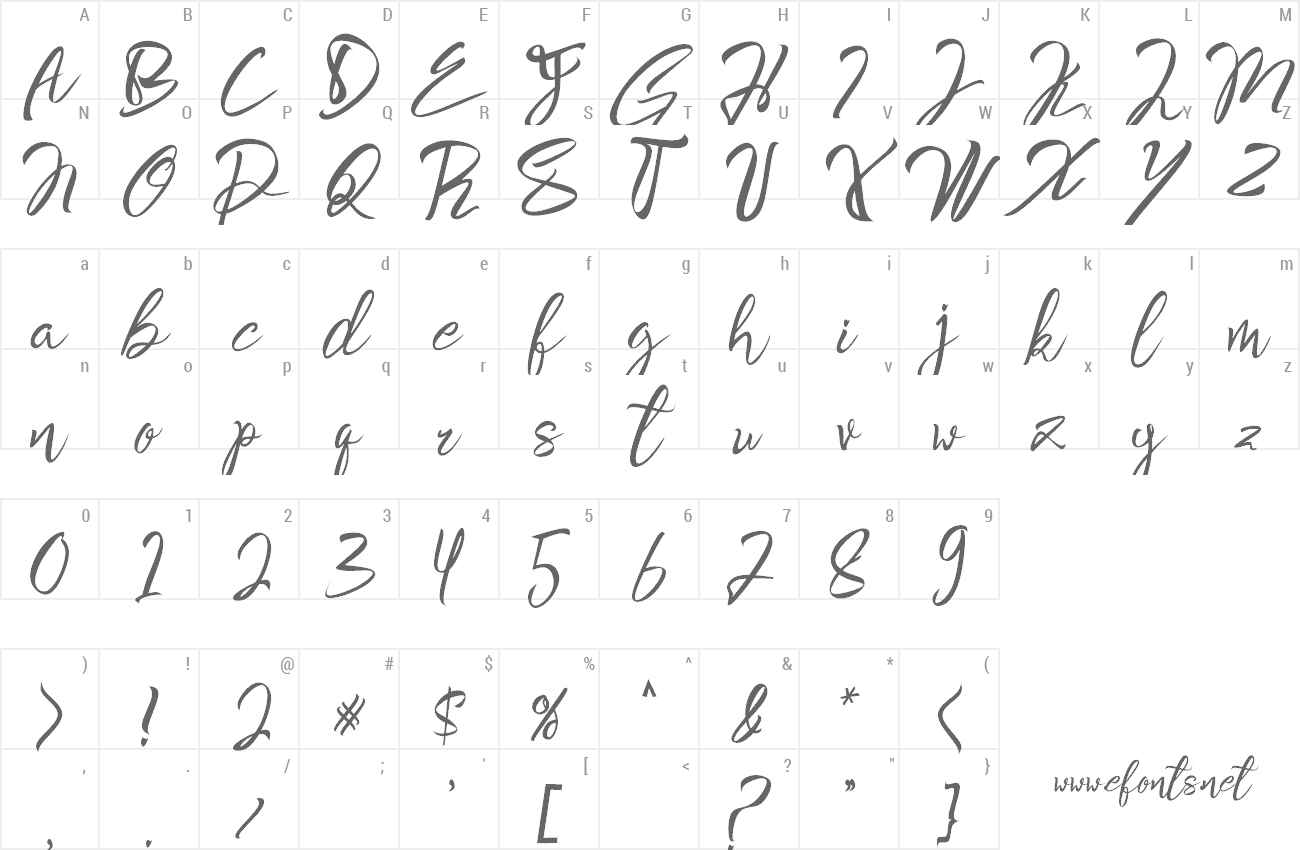 A B C D E F G H I J K L M
A B C D E F G H I J K L M
N O P Q R S T U V W X Y Z
N O P Q R S T U V W X Y Z
a b c d e f g h i j k l m
a b c d e f g h i j k l m
n o p q r s t u v w x y z
n o p q r s t u v w x y z
0 1 2 3 4 5 6 7 8 9
0 1 2 3 4 5 6 7 8 9
) ! @ # $ % ^ & * (
) ! 2 # $ % ^ & * (
, . / ; ' [ < ? " }
, . / ' [ ? " }
wwwefontsnet